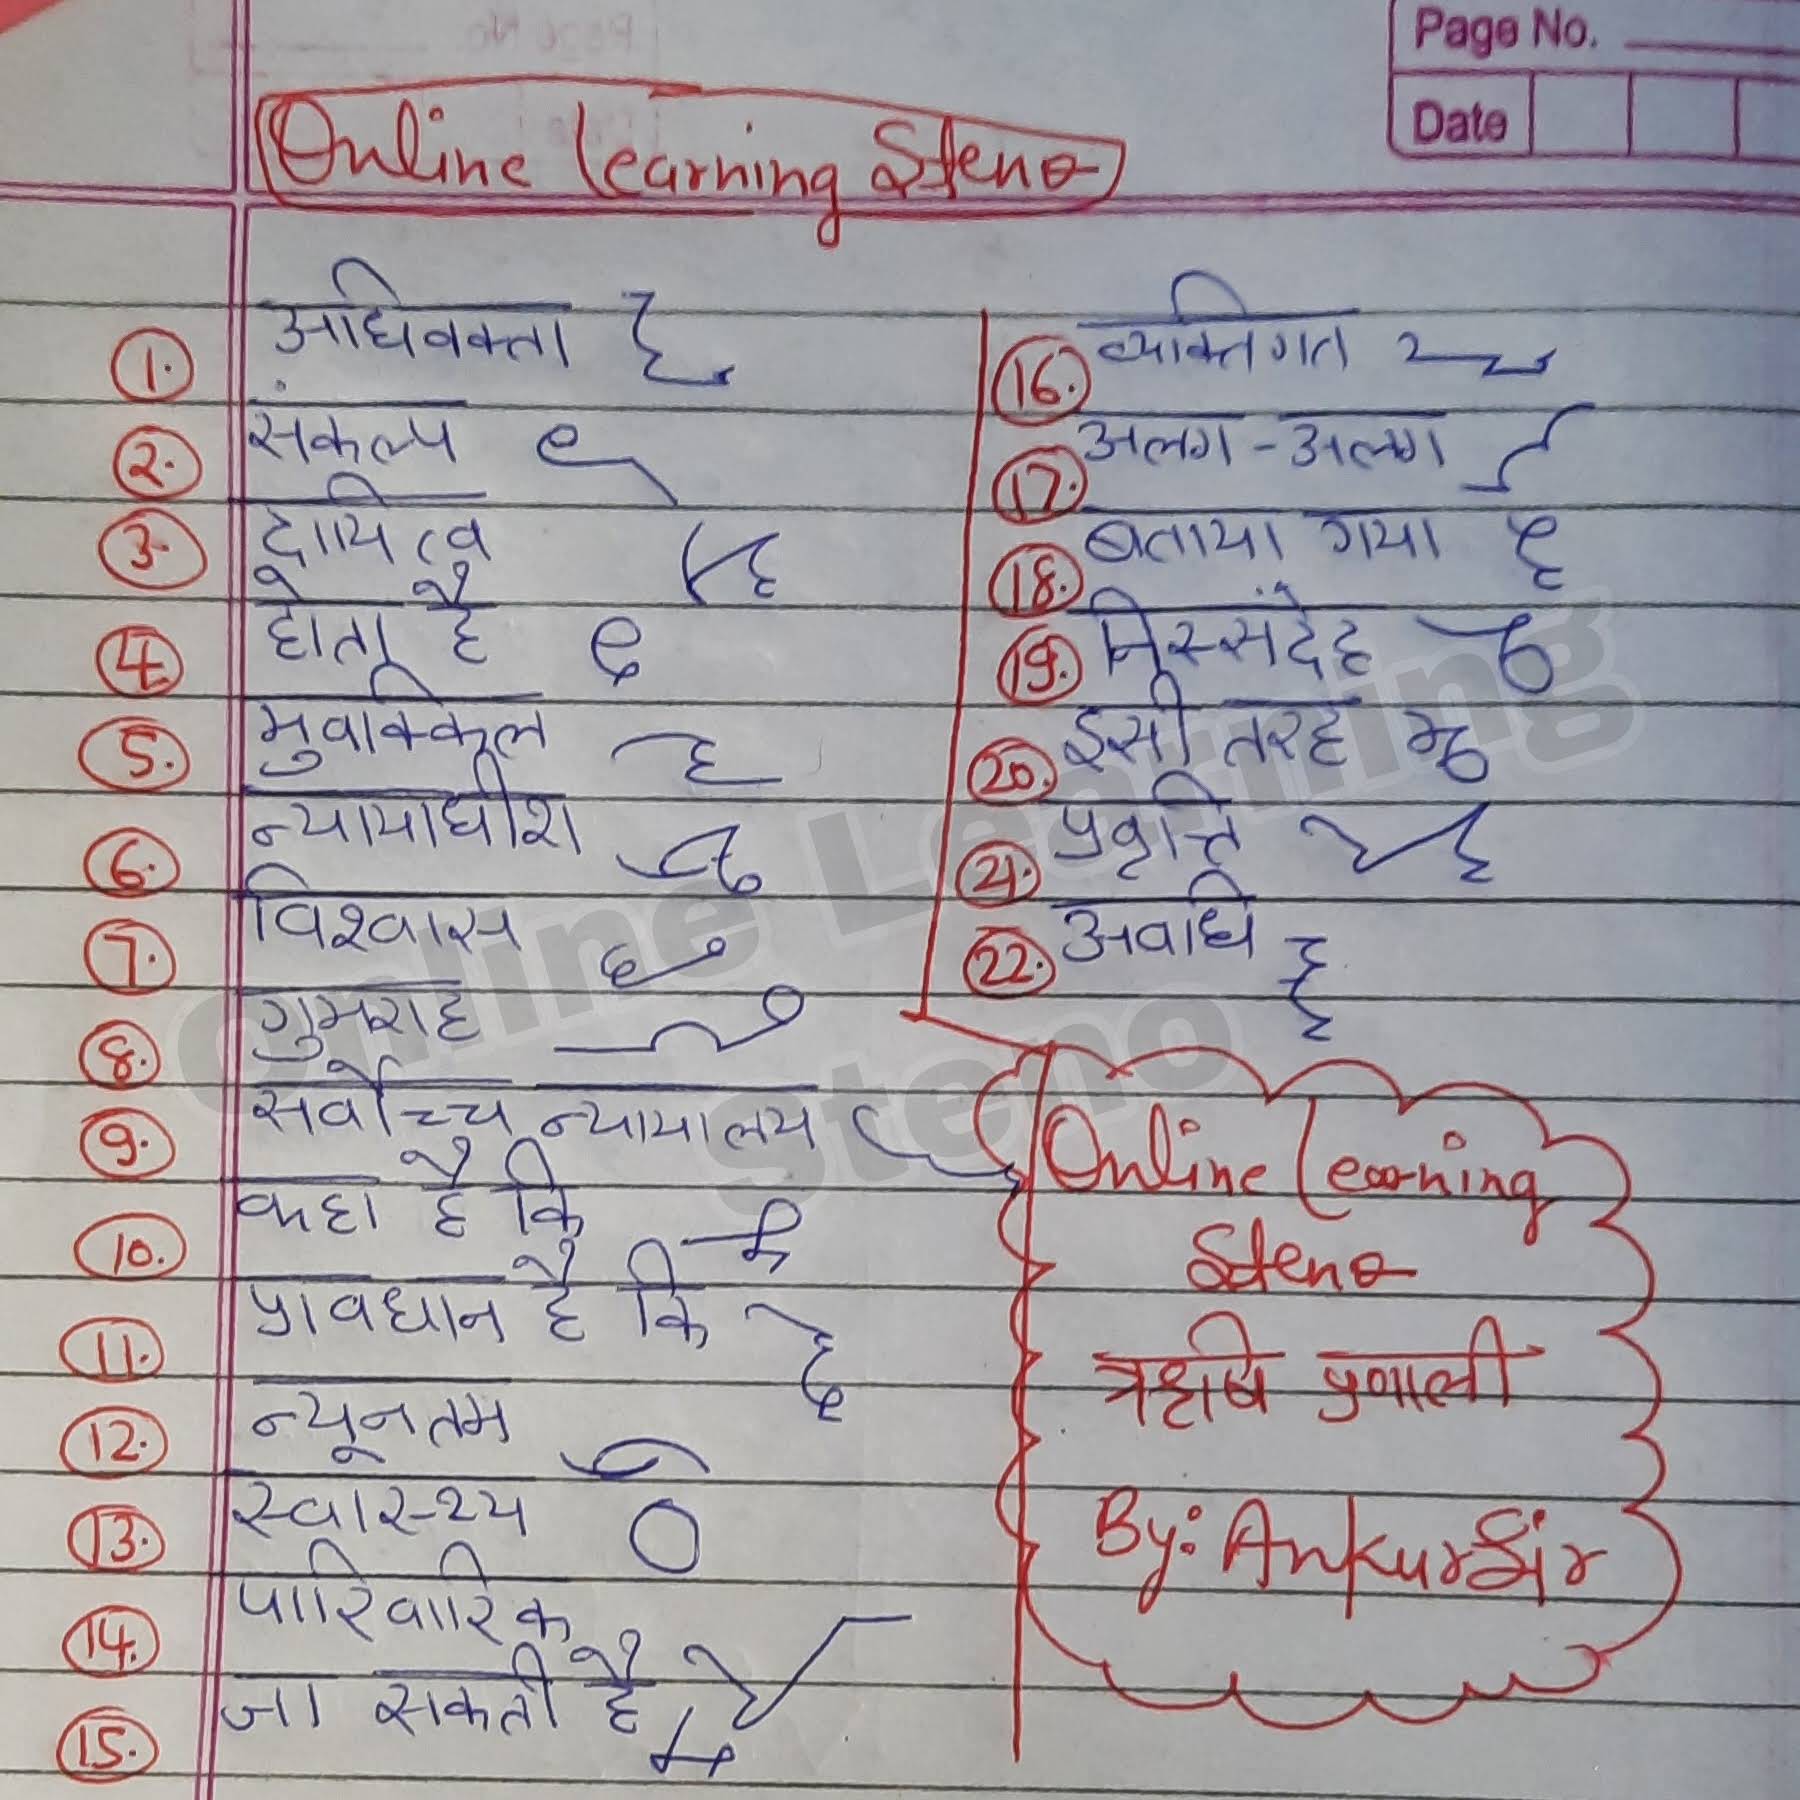 Page No.
Date
Online Learning Steno
1. अधिवक्ता
2. संकल्प
3. दायित्व
4. होता है
5. मुवक्किल
6. न्यायाधीश
7. विश्वास
8. गुमराह
9. सर्वोच्च न्यायालय
10. कहा है कि
11. प्रावधान है कि
12. न्यूनतम
13. स्वास्थ्य
14. पारिवारिक
15. जा सकती है
16. व्यक्तिगत
17. अलग-अलग
18. बताया गया
19. निस्संदेह
20. इसी तरह
21. प्रवृत्ति
22. अवधि
Online Learning
Steno
ऋषि प्रणाली
By: Ankur Sir
Online Learning
Steno